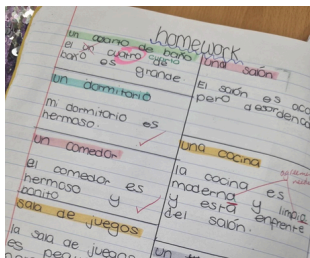 homework
un cuarto de baño
El un cuarto
baño es grande.
un dormitorio
mi dormitorio es
hermoso.
un comedor
el comedor es
hermoso y
bonito
sala de juegos
la sala de juegos
es
una salón
El salón es
pero
una cocina
la cocina es
moderna y limpia
y está enfrente
del salón.
un